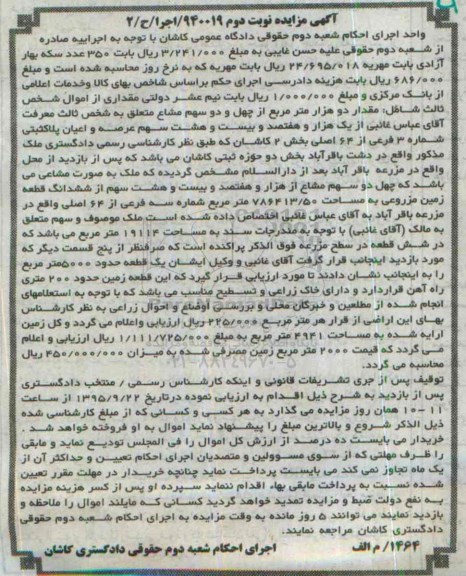 آگهی مزایده نوبت دوم ۹۴۰۰۱۹/اجرا/ح/۲
واحد اجرای احکام شعبه دوم حقوقی دادگاه عمومی کاشان با توجه به اجراییه صادره
از شعبه دوم حقوقی علیه حسن غایبی به مبلغ ۳/۲۴۱/۰۰۰ ریال بابت ۳۵۰ عدد سکه بهار
آزادی بابت مهریه ۲۴/۶۹۵/۰۱۸ ریال بابت مهریه که به نرخ روز محاسبه شده است و مبلغ
۶۸۶/۰۰۰ ریال بابت هزینه دادرسی اجرای حکم براساس شاخص بهای کالا وخدمات اعلامی
از بانک مرکزی و مبلغ ۱/۰۰۰/۰۰۰ ریال بابت نیم عشر دولتی مقداری از اموال شخص
ثالث شامل: مقدار دو هزار متر مربع از چهل و دو سهم مشاع متعلق به شخص ثالث معرفت
آقای عباس غائبی از یک هزار و هفتصد و بیست و هشت سهم عرصه و اعیان پلاکثبتی
شماره ۳ فرعی از ۶۴ اصلی بخش ۲ کاشان که طبق نظر کارشناسی رسمی دادگستری ملک
مذکور واقع در دشت باقرآباد بخش دو حوزه ثبتی کاشان می باشد که پس از بازدید از محل
واقع در مزرعه باقر آباد بعد از دارالسلام مشخص گردیده که ملک به صورت مشاعی می
باشد که چهل دو سهم مشاع از هزار و هفتصد و بیست و هشت سهم از ششدانگ قطعه
زمین مزروعی به مساحت ۷۸۶۴۱۳/۵۰ متر مربع شماره سه فرعی از ۶۴ اصلی واقع در
مزرعه باقر آباد به آقای عباس غائبی اختصاص داده شده است ملک موصوف و سهم متعلق
به مالک (آقای غائبی) با توجه به مندرجات سند به مساحت ۱۹۱۱۴ متر مربع می باشد که
در شش قطعه در سطح مزرعه فوق الذکر پراکنده است که صرفنظر از پنج قسمت دیگر که
مورد بازدید اینجانب قرار گرفت آقای غائبی و وکیل ایشان یک قطعه حدود ۵۰۰۰متر مربع
را به اینجانب نشان دادند تا مورد ارزیابی قرار گیرد که این قطعه زمین حدود ۲۰۰ متری
راه آهن قراردارد و دارای خاک زراعی و تسطیح مناسب می باشد که با توجه به استعلامهای
انجام شده از مطلعین و خبرگان محلی و بررسی اوضاع و احوال زراعی به نظر کارشناس
بهای این اراضی از قرار هر متر مربع ۲۲۵/۰۰۰ ریال ارزیابی واعلام می گردد و کل زمین
ارایه شده به مساحت ۴۹۴۱ متر مربع به مبلغ ۱/۱۱۱/۷۲۵/۰۰۰ ریال ارزیابی و اعلام
می گردد که قیمت ۲۰۰۰ متر مربع زمین مصرفی شده به میزان ۴۵۰/۰۰۰/۰۰۰ ریال
محاسبه می گردد.
توقیف پس از جری تشریفات قانونی و اینکه کارشناس رسمی / منتخب دادگستری
پس از بازدید به شرح ذیل اقدام به ارزیابی نموده درتاریخ ۱۳۹۵/۹/۲۲ از ساعت
۱۱-۱۰ همان روز مزایده می گذارد به هر کسی و کسانی که از مبلغ کارشناسی شده
ذیل الذکر شروع و بالاترین مبلغ را پیشنهاد نماید اموال به او فروخته خواهد شد .
خریدار می بایست ده درصد از ارزش کل اموال را فی المجلس تودیع نماید و مابقی
را ظرف مهلتی که از سوی مسوولین و متصدیان اجرای احکام تعیین و حداکثر آن از
یک ماه تجاوز نمی کند می بایست پرداخت نماید چنانچه خریدار در مهلت مقرر تعیین
شده نسبت به پرداخت مابقی بهاء اقدام ننماید سپرده او پس از کسر هزینه مزایده
به نفع دولت ضبط و مزایده تمدید خواهد گردید کسانی که مایلند اموال را ملاحظه و
بازدید نمایند می توانند ۵ روز مانده به وقت مزایده به اجرای احکام شعبه دوم حقوقی
دادگستری کاشان مراجعه نمایند.
۱۴۶۴/م الف اجرای احکام شعبه دوم حقوقی دادگستری کاشان